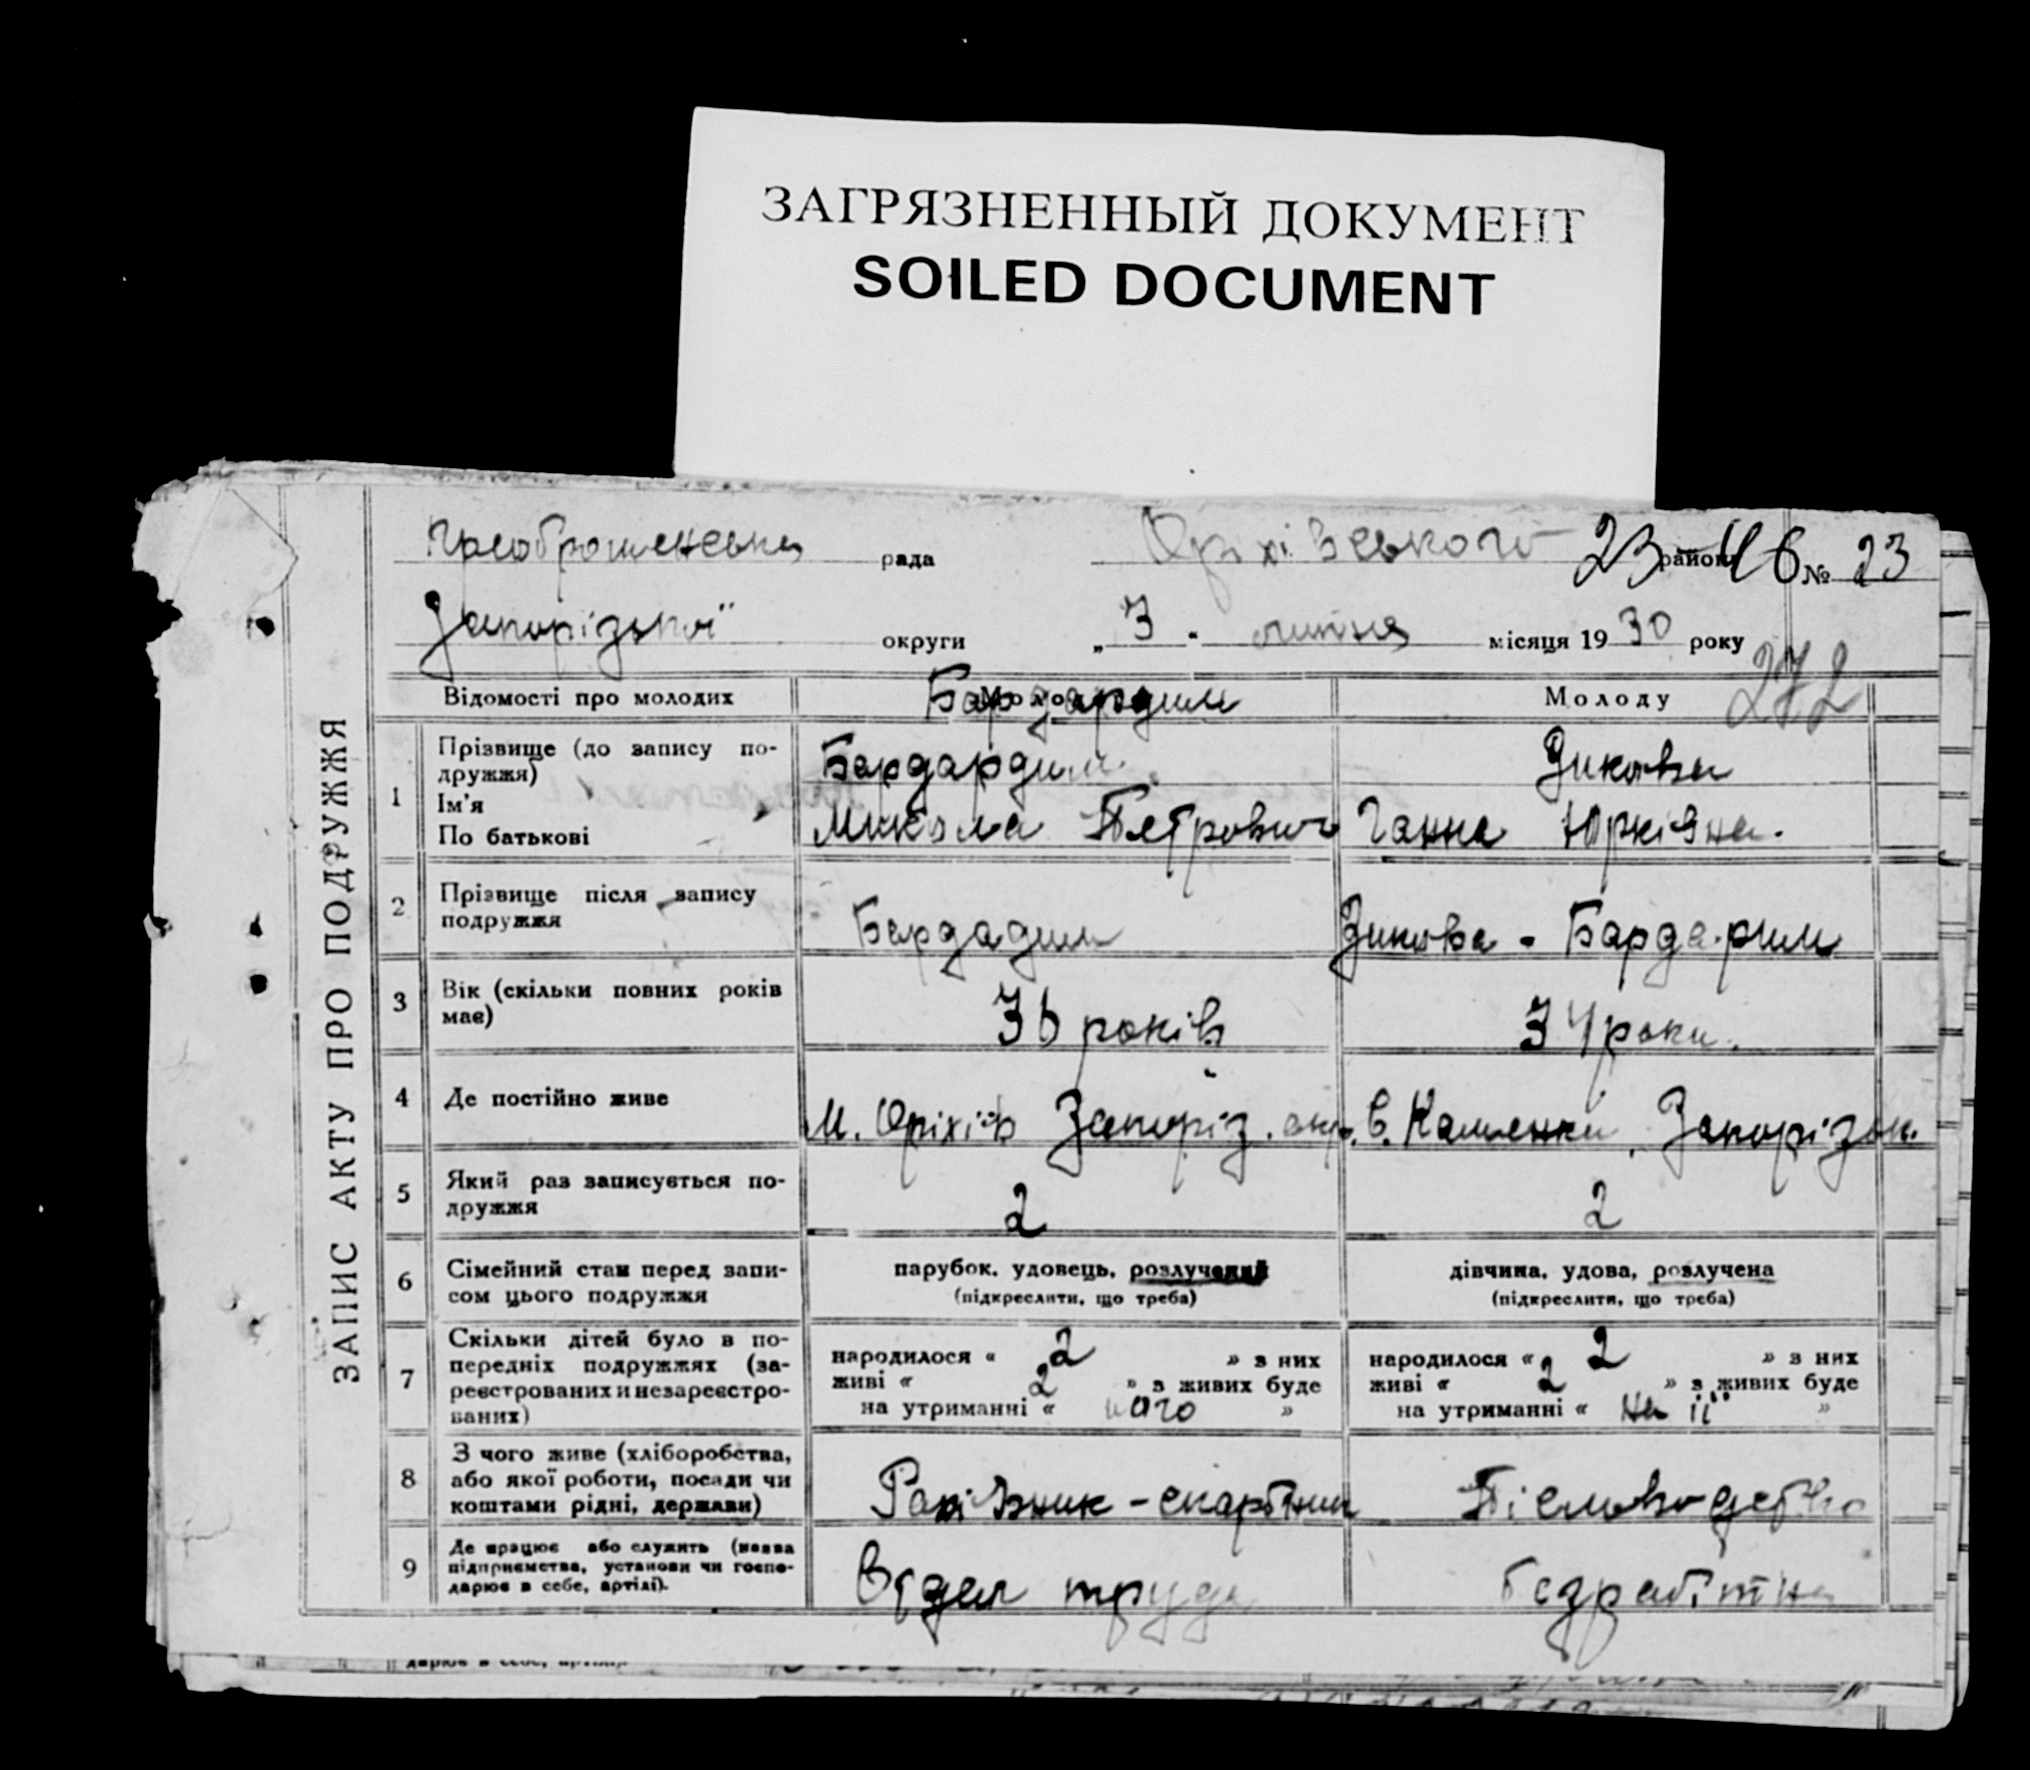 ЗАГРЯЗНЕННЫЙ ДОКУМЕНТ
SOILED DOCUMENT
ЗАПИС АКТУ ПРО ПОДРУЖЖЯ
рада Оріхівського район 23 46 № 23
Запорізької округи „ 3 " липня місяця 19 30 року
272
Відомості про молодих Бардадим Молоду
1 Прізвище (до запису подружжя) Бардардим Дикова
Ім'я
По батькові Микола Петрович Ганна Юрківна.
2 Прізвище після запису подружжя Бардадим Дикова - Бардарим
3 Вік (скільки повних років має) 36 років 34 роки.
4 Де постійно живе М. Оріхів Запоріз. окр. С. Каменка Запоріз ок.
5 Який раз записується подружжя 2 2
6 Сімейний стан перед записом цього подружжя парубок, удовець, розлучений дівчина, удова, розлучена
(підкреслити, що треба) (підкреслити, що треба)
7 Скільки дітей було в попередніх подружжях (зареєстрованих и незареєстрованих)
народилося « 2 » з них народилося « 2 » з них
живі « 2 » з живих буде живі « 2 » з живих буде
на утриманні « його » на утриманні « на її »
8 З чого живе (хліборобства, або якої роботи, посади чи коштами рідні, держави)
9 Де працює або служить (назва підприємства, установи чи господарює в себе, артілі). Отдел труда Безробітна